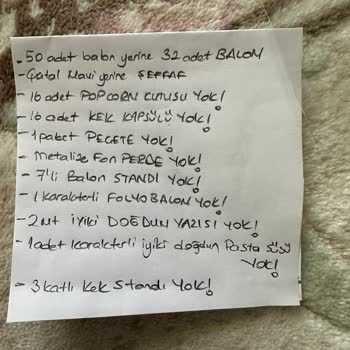 - 50 adet balon yerine 32 adet BALON
- Çatal Mavi yerine ŞEFFAF
- 16 adet POPCORN KUTUSU YOK!
- 16 adet KEK KAPSÜLÜ YOK!
- 1 paket PEÇETE YOK!
- Metalize Fon PERDE YOK!
- 7'li Balon STANDI YOK!
- 1 Karakterli FOLYO BALON YOK!
- 2 mt İYİKİ DOĞDUN YAZISI YOK!
- 1 adet Karakterli iyiki doğdun Pasta SÜSÜ
YOK!
- 3 katlı Kek Standı YOK!